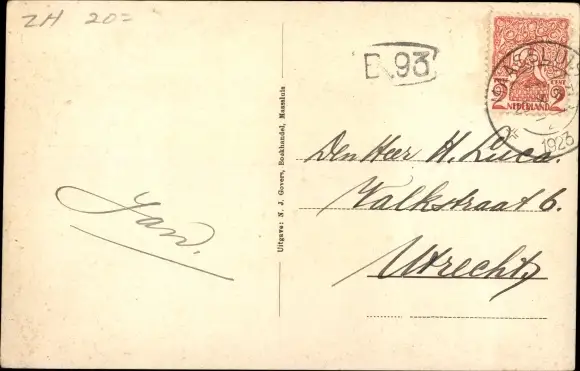 ZH 20=
B.93
CENT CENT
2 2
NEDERLAND
MAASSLUIS
1923
Den Heer H. Luca.
Valkstraat 6.
Utrecht
Jan.
Uitgave: N. J. Govers, Boekhandel, Maassluis